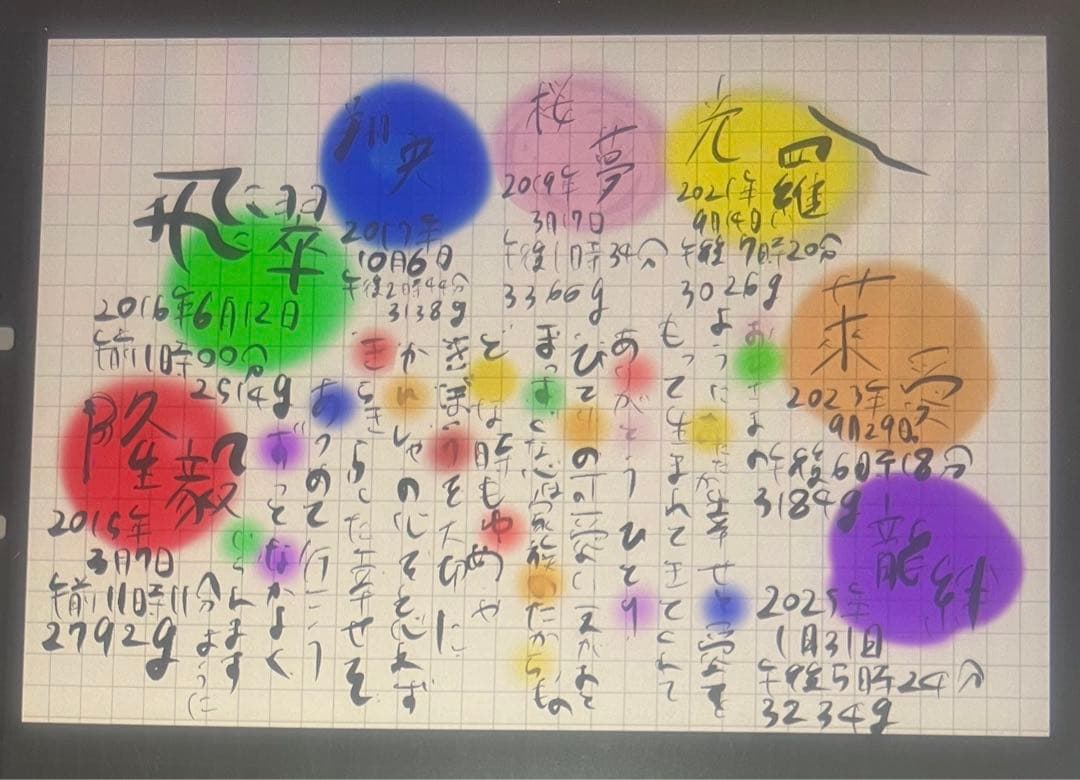 隆毅
2015年
3月7日
午前11時11分
2792g
飛翠
2016年6月12日
午前11時00分
2514g
翔央
2017年
10月6日
午後2時44分
3138g
桜夢
2019年
3月17日
午後1時34分
3366g
光羅
2021年
9月14日
午後7時20分
3026g
莱愛
2023年
9月29日
午後6時18分
3184g
龍絆
2025年
1月31日
午後5時24分
3234g
ように 幸せと愛を
もって生まれてきてくれて
ありがとう ひとり
ひとりの可愛い えがおと
まっすぐな心は家族のたからもの
どんな時もゆめや
きぼうを大切に
きらきらした幸せを
あつめて行こう
ずっとなかよく
ますように